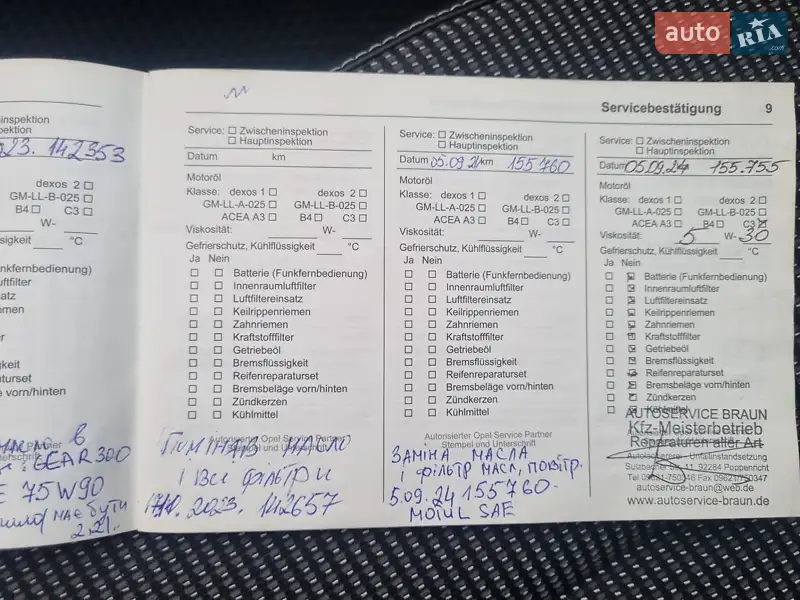 auto RIA
Servicebestätigung 9
nspektion
pektion
23. 142353
dexos 2
GM-LL-B-025
B4 C3
W-
sigkeit °C
nkfernbedienung)
tfilter
atz
emen
r
gkeit
aturset
e vorn/hinten
Partner
в
GEAR 300
75W90
має бути
2.21.
Service: Zwischeninspektion
Hauptinspektion
Datum km
Motoröl
Klasse: dexos 1 dexos 2
GM-LL-A-025 GM-LL-B-025
ACEA A3 B4 C3
Viskosität: W-
Gefrierschutz, Kühlflüssigkeit °C
Ja Nein
Batterie (Funkfernbedienung)
Innenraumluftfilter
Luftfiltereinsatz
Keilrippenriemen
Zahnriemen
Kraftstofffilter
Getriebeöl
Bremsflüssigkeit
Reifenreparaturset
Bremsbeläge vorn/hinten
Zündkerzen
Kühlmittel
Autorisierter Opel Service Partner
Stempel und Unterschrift
і всі фільтри
2023. 142657
Service: Zwischeninspektion
Hauptinspektion
Datum 05.09.24 km 155760
Motoröl
Klasse: dexos 1 dexos 2
GM-LL-A-025 GM-LL-B-025
ACEA A3 B4 C3
Viskosität: W-
Gefrierschutz, Kühlflüssigkeit °C
Ja Nein
Batterie (Funkfernbedienung)
Innenraumluftfilter
Luftfiltereinsatz
Keilrippenriemen
Zahnriemen
Kraftstofffilter
Getriebeöl
Bremsflüssigkeit
Reifenreparaturset
Bremsbeläge vorn/hinten
Zündkerzen
Kühlmittel
Autorisierter Opel Service Partner
Stempel und Unterschrift
ЗАМІНА МАСЛА
і фільтр масл, повітр.
5.09.24 155760.
MOTUL SAE
Service: Zwischeninspektion
Hauptinspektion
Datum 05.09.24 155.755
Motoröl
Klasse: dexos 1 dexos 2
GM-LL-A-025 GM-LL-B-025
ACEA A3 B4 C3
Viskosität: 5 W- 30
Gefrierschutz, Kühlflüssigkeit °C
Ja Nein
Batterie (Funkfernbedienung)
Innenraumluftfilter
Luftfiltereinsatz
Keilrippenriemen
Zahnriemen
Kraftstofffilter
Getriebeöl
Bremsflüssigkeit
Reifenreparaturset
Bremsbeläge vorn/hinten
Zündkerzen
Kühlmittel
AUTOSERVICE BRAUN
Kfz-Meisterbetrieb
Reparaturen aller Art
Autolackiererei - Unfallinstandsetzung
Sulzbacher Str. 11, 92284 Poppenricht
Tel 09621-750346 Fax 09621/750347
autoservice-braun@web.de
www.autoservice-braun.de